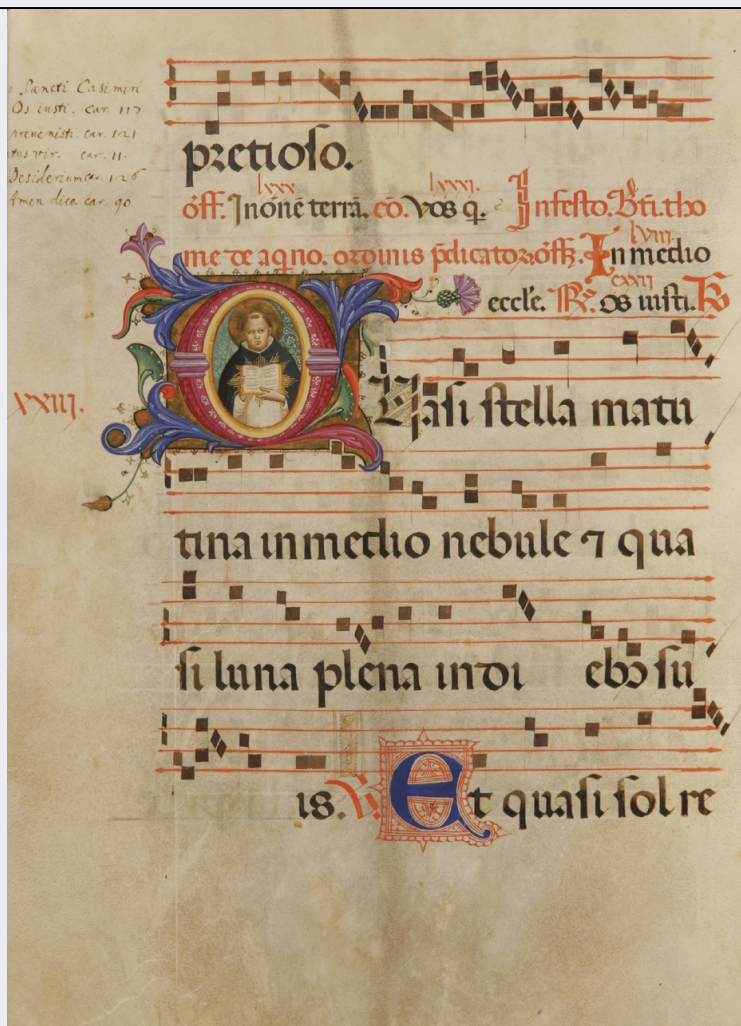 Sancti Casimiri
Os iusti. car. 117
car. 121
vir. car. 11.
Desiderium car. 126
Amen dico car. 90
pretioso.
lxxx lxxxi.
off. In one terra. co. Vos q. In festo. Bti. tho
lviii
me de aqno. ordinis pdicatoz. offz. In medio
cxvii
eccle. R. os iusti. R
XXIII.
Quasi stella matu
tina in medio nebule ⁊ qua
si luna plena in di ebz su
is. R Et quasi sol re